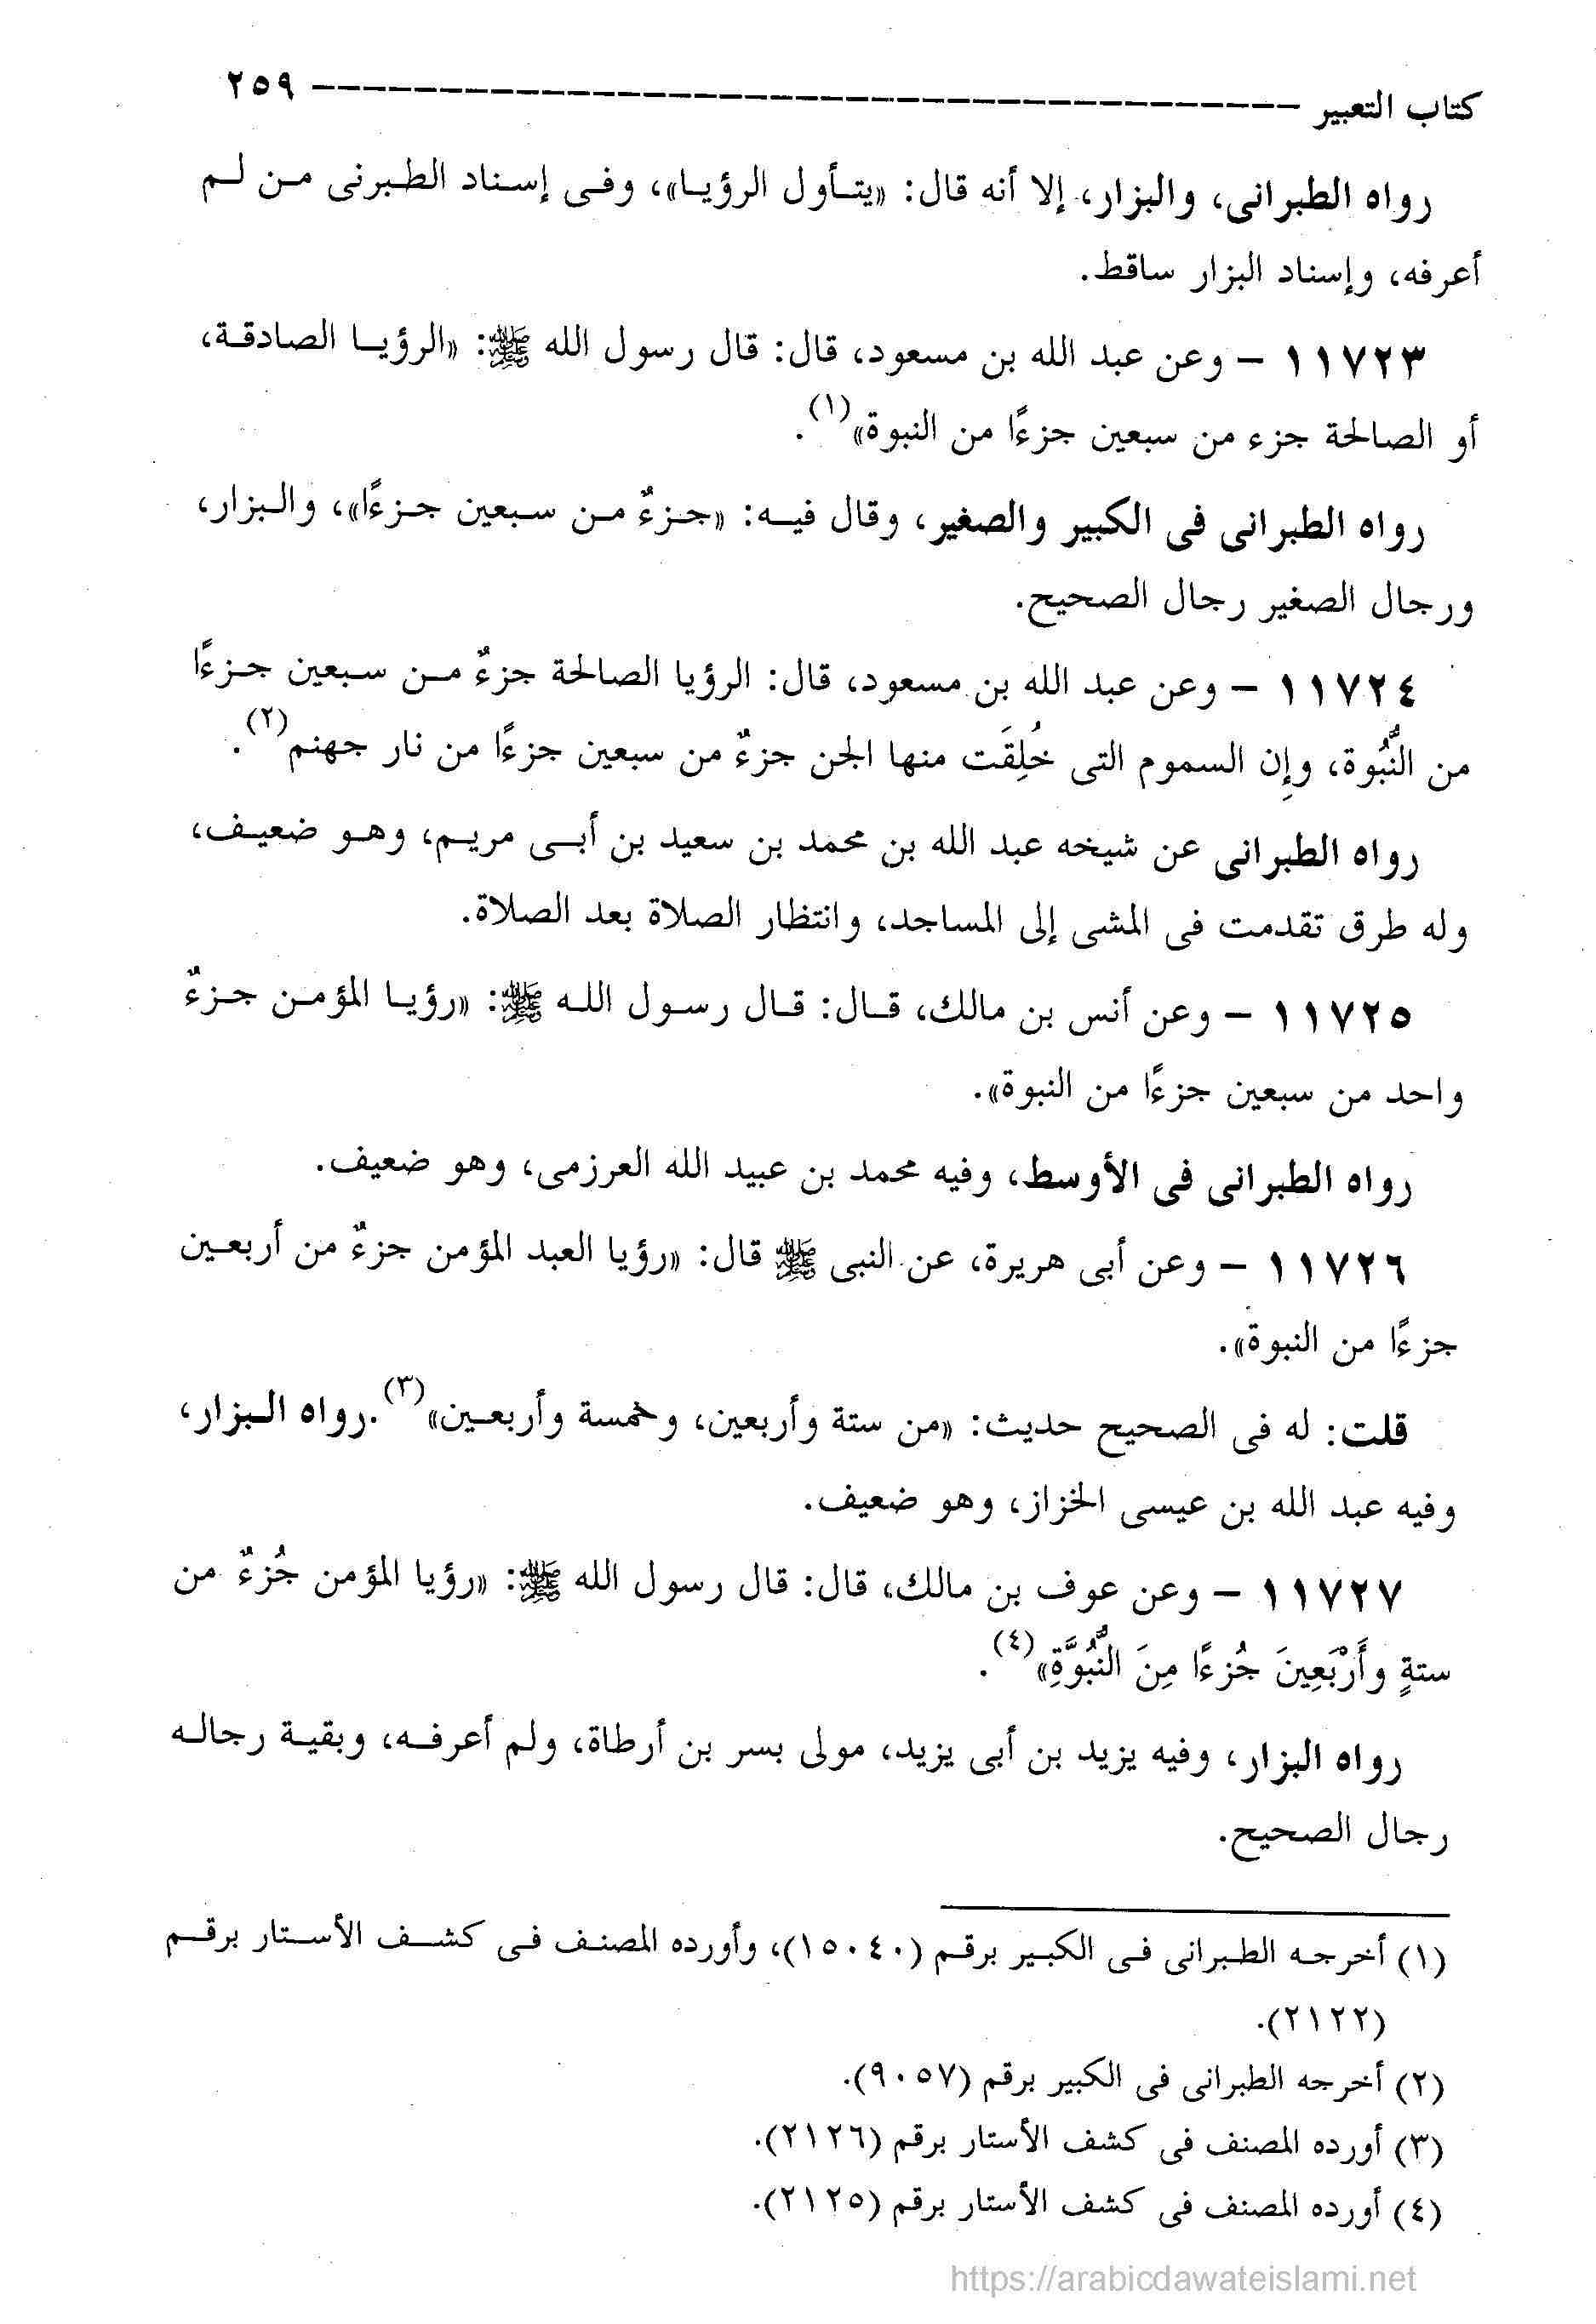 كتاب التعبير ــــــــــــــــــــــــــــــــــــــــــ ٢٥٩
رواه الطبرانى، والبزار، إلا أنه قال: «يتأول الرؤيا»، وفى إسناد الطبرنى من لم
أعرفه، وإسناد البزار ساقط.
١١٧٢٣ – وعن عبد الله بن مسعود، قال: قال رسول الله ﷺ: «الرؤيا الصادقة،
أو الصالحة جزء من سبعين جزءًا من النبوة»(١).
رواه الطبرانى فى الكبير والصغير، وقال فيه: «جزءٌ من سبعين جزءًا»، والبزار،
ورجال الصغير رجال الصحيح.
١١٧٢٤ – وعن عبد الله بن مسعود، قال: الرؤيا الصالحة جزءٌ من سبعين جزءًا
من النُّبُوة، وإِن السموم التى خُلِقَت منها الجن جزءٌ من سبعين جزءًا من نار جهنم(٢).
رواه الطبرانى عن شيخه عبد الله بن محمد بن سعيد بن أبى مريم، وهو ضعيف،
وله طرق تقدمت فى المشى إلى المساجد، وانتظار الصلاة بعد الصلاة.
١١٧٢٥ – وعن أنس بن مالك، قال: قال رسول الله ﷺ: «رؤيا المؤمن جزءٌ
واحد من سبعين جزءًا من النبوة».
رواه الطبرانى فى الأوسط، وفيه محمد بن عبيد الله العرزمى، وهو ضعيف.
١١٧٢٦ – وعن أبى هريرة، عن النبى ﷺ قال: «رؤيا العبد المؤمن جزءٌ من أربعين
جزءًا من النبوة».
قلت: له فى الصحيح حديث: «من ستة وأربعين، وخمسة وأربعين»(٣).رواه البزار،
وفيه عبد الله بن عيسى الخزاز، وهو ضعيف.
١١٧٢٧ – وعن عوف بن مالك، قال: قال رسول الله ﷺ: «رؤيا المؤمن جُزءٌ من
ستةٍ وأَرْبَعِينَ جُزءًا مِنَ النُّبُوَّةِ»(٤).
رواه البزار، وفيه يزيد بن أبى يزيد، مولى بسر بن أرطاة، ولم أعرفه، وبقية رجاله
رجال الصحيح.
(١) أخرجه الطبرانى فى الكبير برقم (١٥٠٤٠)، وأورده المصنف فى كشف الأستار برقم
(٢١٢٢).
(٢) أخرجه الطبرانى فى الكبير برقم (٩٠٥٧).
(٣) أورده المصنف فى كشف الأستار برقم (٢١٢٦).
(٤) أورده المصنف فى كشف الأستار برقم (٢١٢٥).
https://arabicdawateislami.net